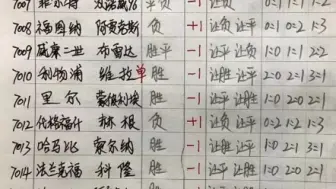 7008 福图纳 阿贾克斯 负 +1 让负 0:1 1:2 1:3
7009 威廉二世 布雷达 胜平 -1 让平 让负 1:0 1:1 2:1
7010 利物浦 维拉 单 胜 -1 让平 让胜 2:0 2:1 3:1
7011 里尔 蒙彼利埃 胜 -1 让平 让胜 1:0 2:0 2:1
7012 代格福什 林根 负 +1 让负 0:2 1:2 1:3
7013 哈马比 索尔纳 胜 -1 让平 让胜 1:0 2:1 3:1
7014 法兰克福 科隆 胜 -1 让平 让胜 2:0 2:1 3:1